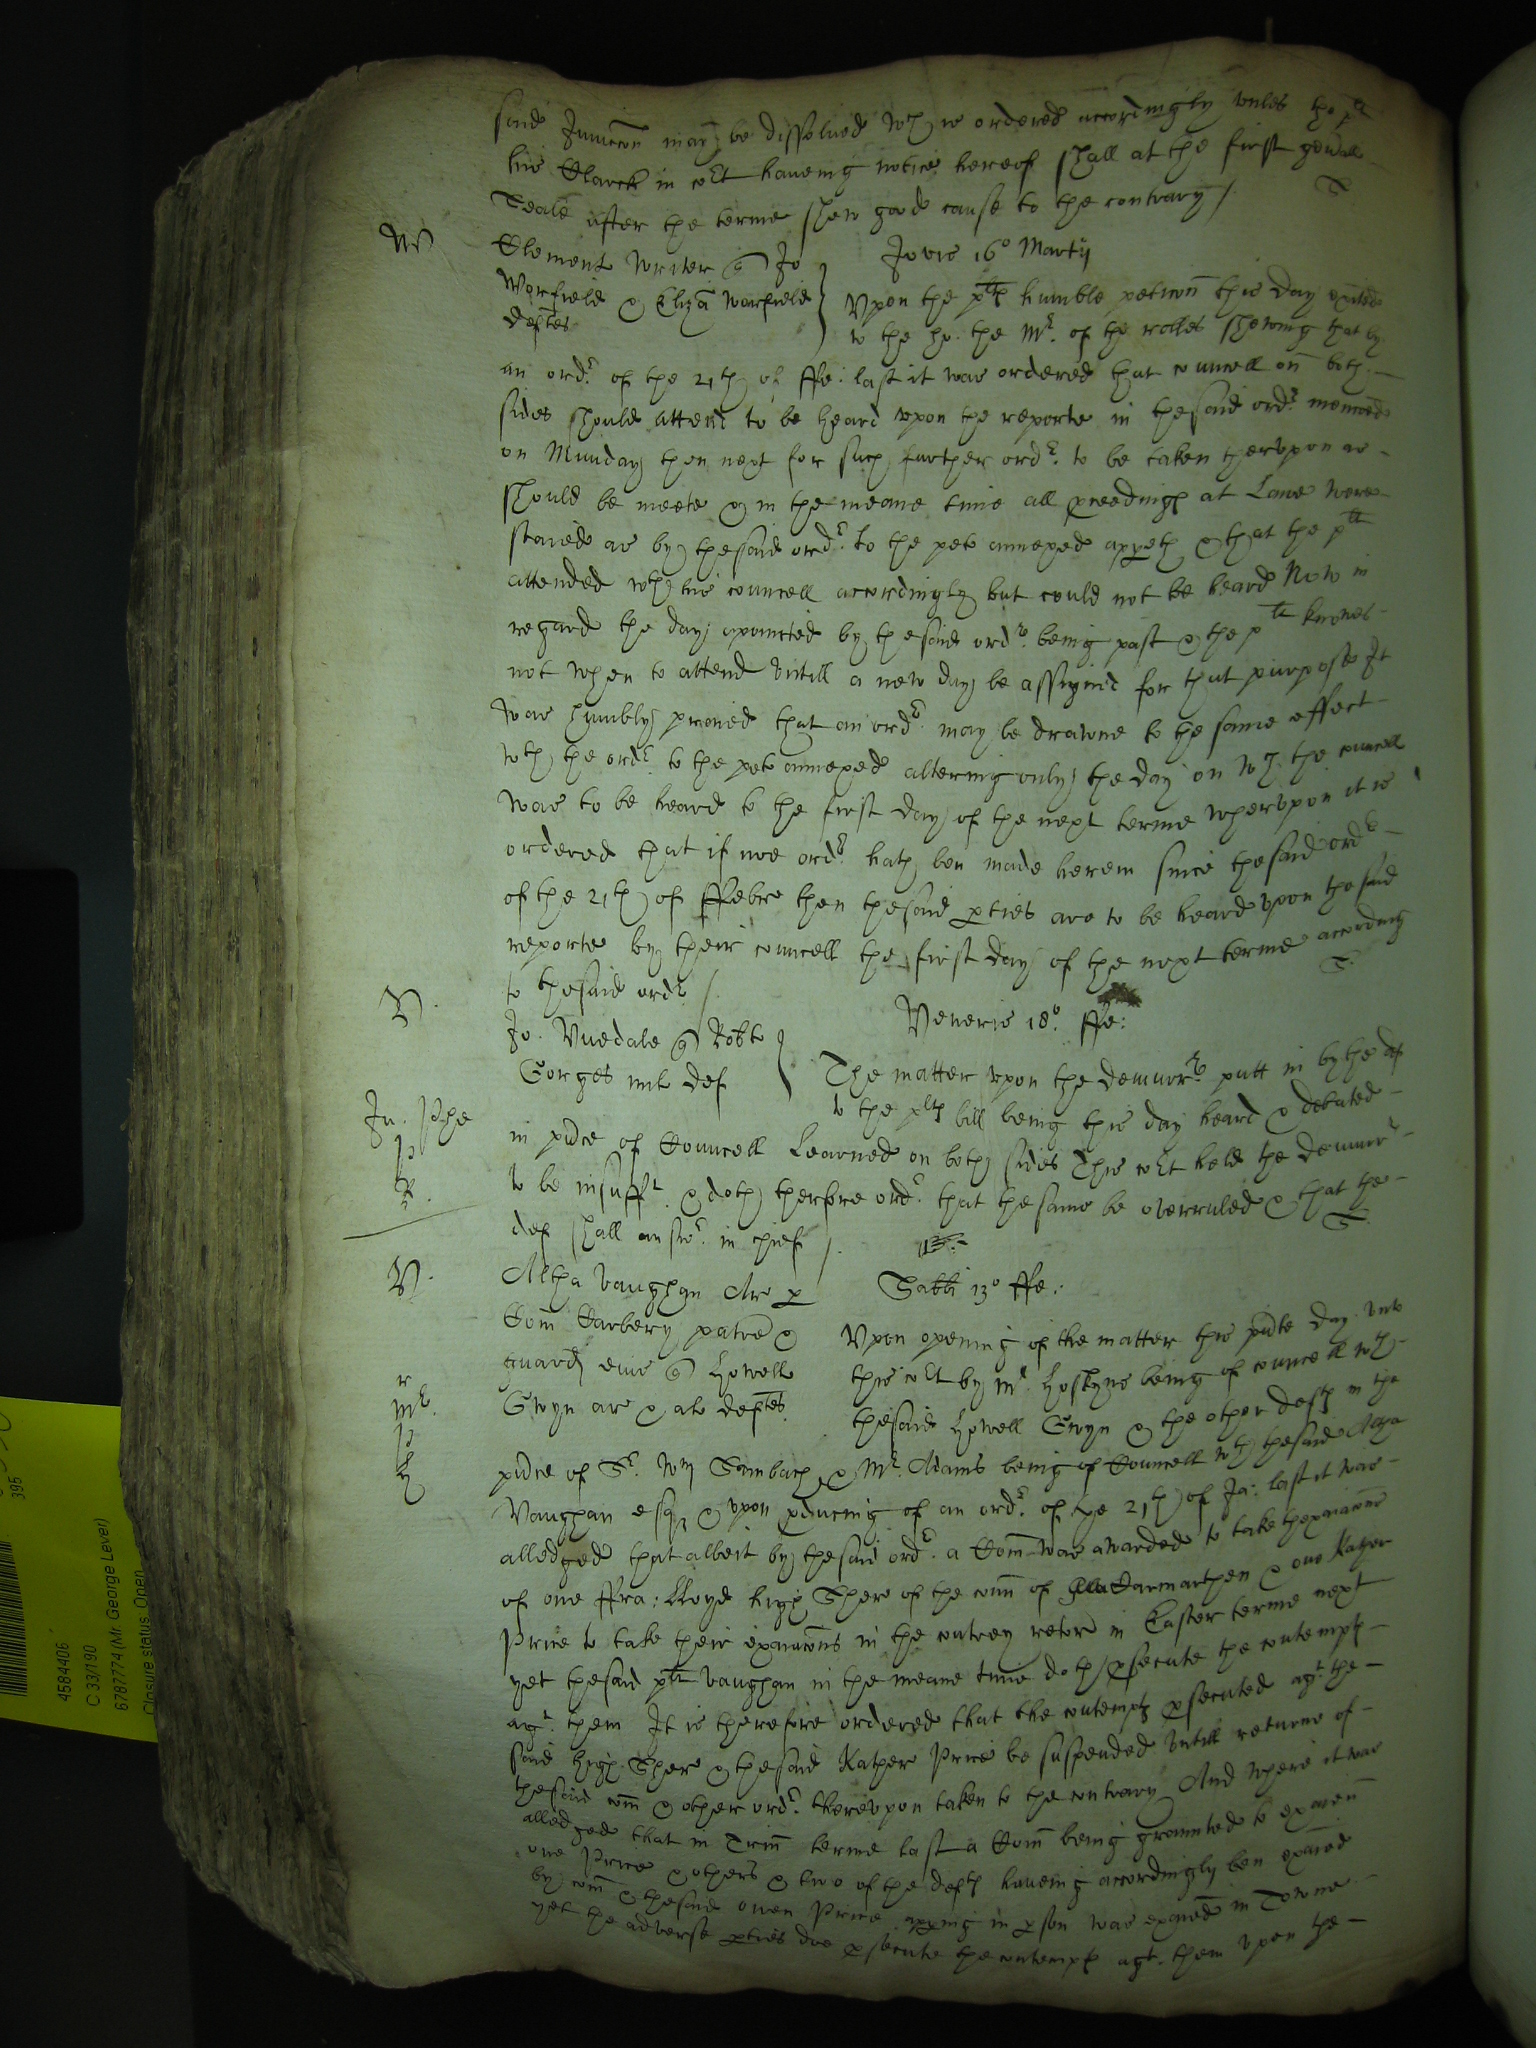 said Iniuccon may be dissolued wch is ordered accordingly vnles the plt
his Clarck in cort haueing notice hereof shall at the first genall
Seale after the terme shew good cause to the contrary /.
W
Clement Writer Jo
Worfield & Eliza Warfield
deftes
Jovis 16o Martij
Vpon the plts humble peticon this day exited
to the ho. the Mr. of the rolles shewing that by
an ordr. of the 21th of ffe: last it was ordered that councell on both
sides should attend to be heard vpon the reporte in thesaid ordr. menconed
on Munday then next for such further ordr. to be taken thervpon as
should be meete & in the meane time all pceedings at Lawe were
staied as by thesaid ordr. to the peto annexed appeth & that the plt
attended wth his councell accordingly but could not be heard Now in
regard the day apointed by thesaid ordr. being past & the plt knowes
not when to attend vntill a new day be assigned for that purpose It
was humbly praied that an ordr. may be drawne to the same effect
wth the ordr. to the peto annexed altering only the day on wch the councell
was to be heard to the first day of the next terme whervpon it is
ordered that if noe ordr. hath ben made herein since thesaid ordr
of the 21th of ffebre then thesaid pties are to be heard vpon thesaid
reporte by their councell the first day of the next terme according
to thesaid ordr /
V.
Jo. Vuedale Robto
Gorges mil def
Veneris 18o. ffe:
The matter vpon the demurr. putt in by the def
to the plts bill being this day heard & debated
in pnce of Councell Learned on both sides This cort held the demurr
to be insufft. & doth therfore ordr. that the same be overruled & that the
def shall answr. in chief /.
V.
Altha Vaughan Ar p
Com Carbery patre &
guard eius Howell
Gwyn ar & als deftes
Sabbi 13o ffe:
Vpon opening of the matter this pnte day vnto
this cort by Mr. Hoskyns being of councell wth
thesaid Howell Gwyn & the other defts in the
pnce of Sr. Wm Sambach & Mr. Adams being of Councell wth thesaid Altha
Vaughan esq & vpon pducing of an ordr. of the 21th of Ja: last it was
alledged that albeit by thesaid ordr. a Com was awarded to take thexaiacons
of one ffra: Lloyd high Shere of the coun of Carmarthen & one Kather
Price to take their exaiacons in the contrey retorn in Easter terme next
yet thesaid plt Vaughan in the meane time doth psecute the contempts
agt. them It is therefore ordered that the contempts psecuted agt. the
said high Shere & thesaid Kather Price be suspended vntill returne of
thesaid com & other ordr. therevpon taken to the contrary And where it was
alledged that in Trin terme last a Com being graunted to exaien
one Price & others & two of the defts haueing accordingly ben exaied
by com & thesaid Owen Price apping in pson was exaied in Towne
yet the adverse pties doe psecute the contempts agt. them vpon the
4584406
C 33/190
6787774 (Mr. George Lever)
Closure status Open
395